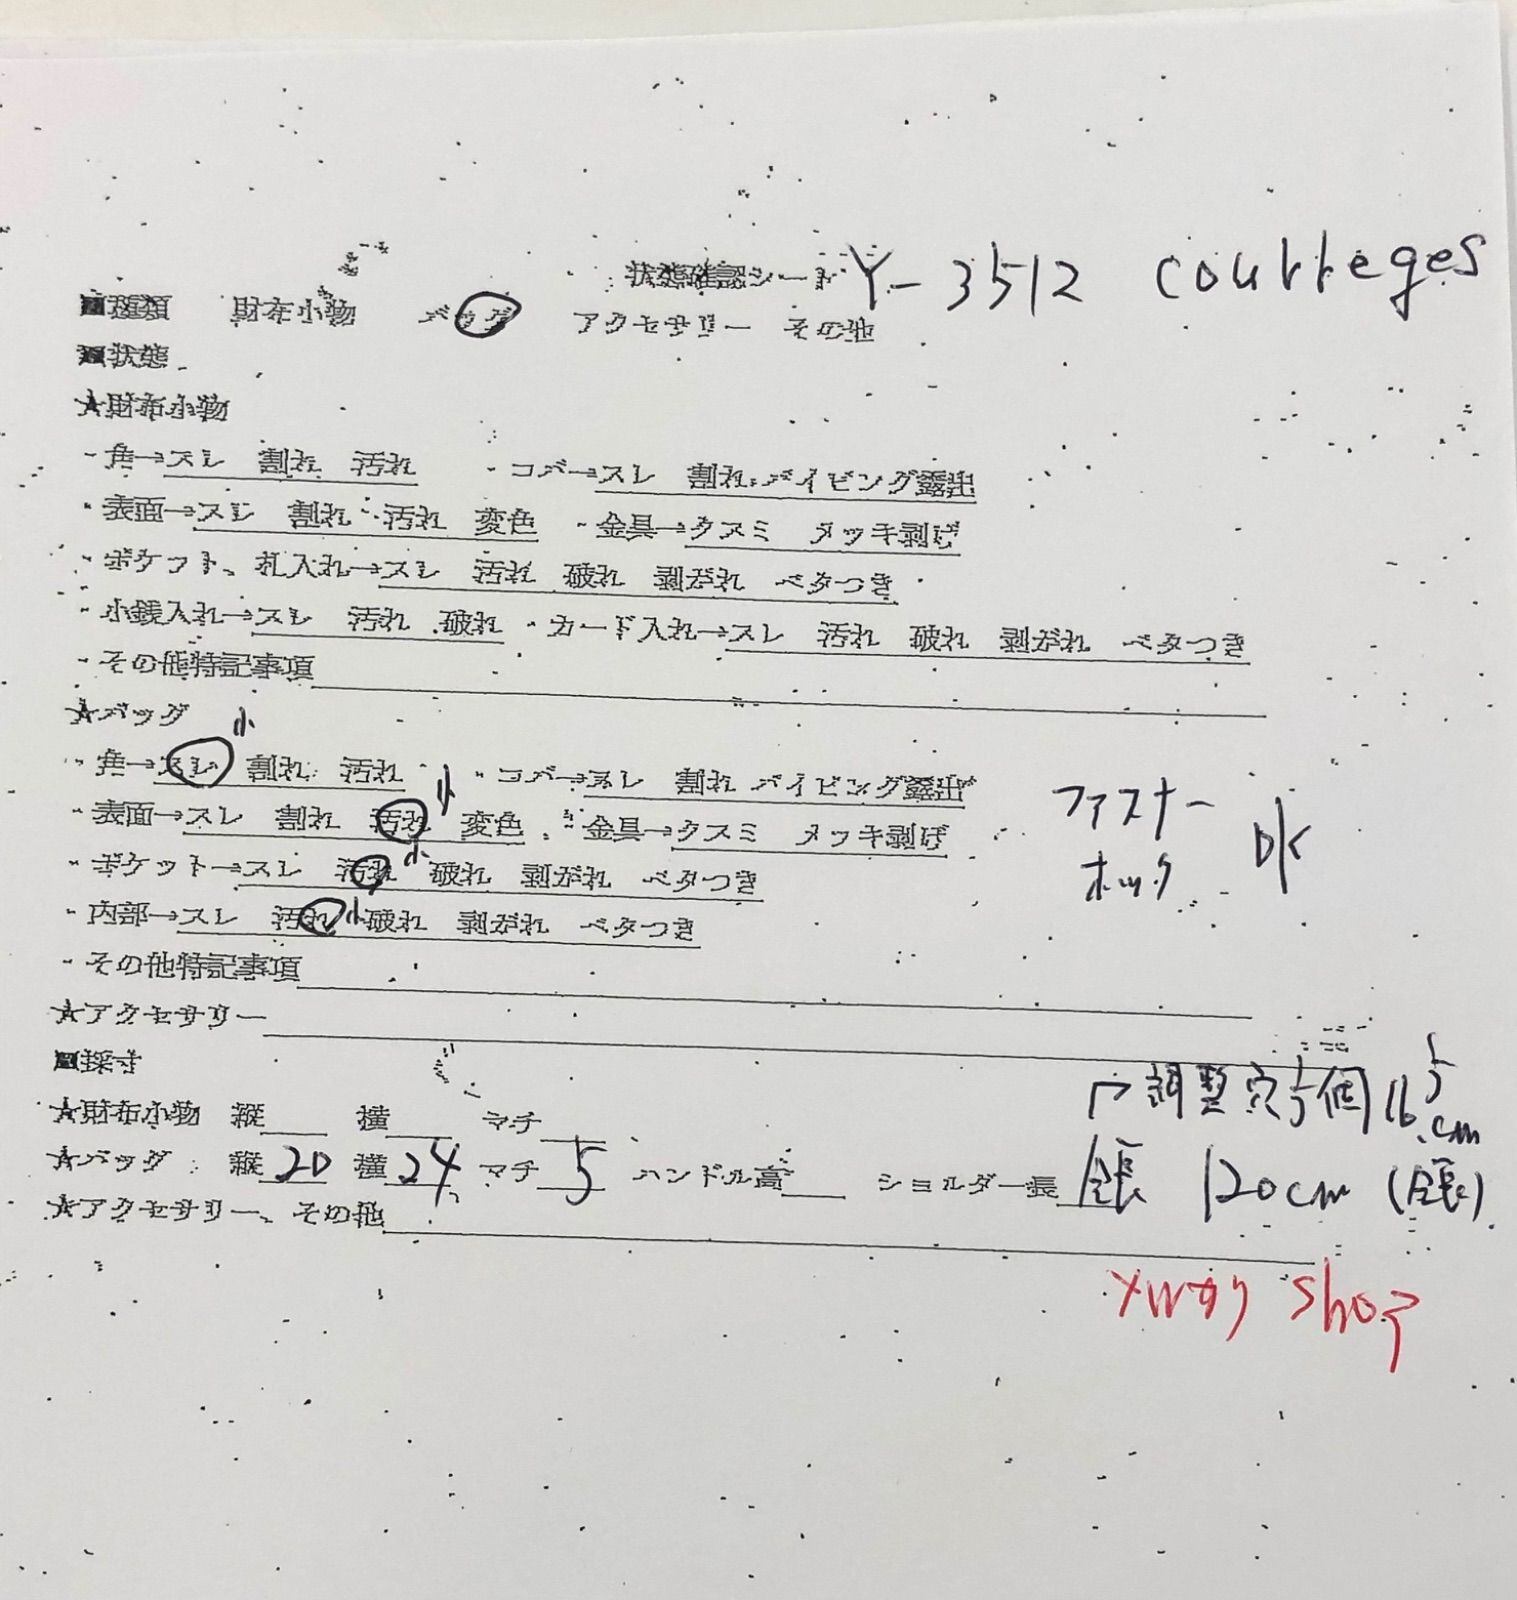 状態確認シート Y-3512 courreges
■種類 財布小物 バッグ アクセサリー その他
■状態
★財布小物
・角→スレ 割れ 汚れ ・コバ→スレ 割れ パイピング露出
・表面→スレ 割れ 汚れ 変色 ・金具→クスミ メッキ剥げ
・ポケット、札入れ→スレ 汚れ 破れ 剥がれ ベタつき
・小銭入れ→スレ 汚れ 破れ ・カード入れ→スレ 汚れ 破れ 剥がれ ベタつき
・その他特記事項
★バッグ
・角→スレ 小 割れ 汚れ ・コバ→スレ 割れ パイピング露出
・表面→スレ 割れ 汚れ 小 変色 ・金具→クスミ メッキ剥げ ファスナー
・ポケット→スレ 汚れ 小 破れ 剥がれ ベタつき ホック OK
・内部→スレ 汚れ 小 破れ 剥がれ ベタつき
・その他特記事項
★アクセサリー
■採寸
調整穴5個
★財布小物 縦 横 マチ cm
★バッグ 縦20 横24 マチ5 ハンドル高 ショルダー長 全長 120cm (全長)
★アクセサリー、その他
shop